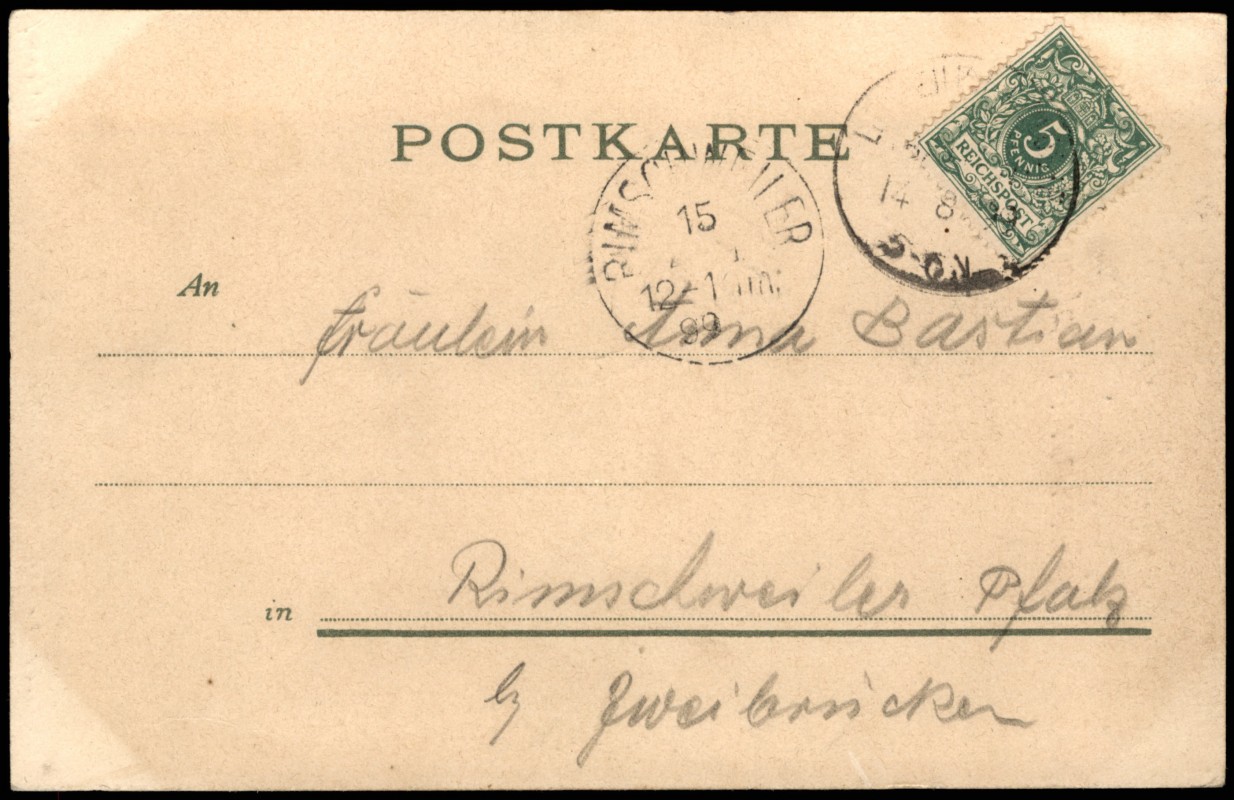 POSTKARTE
5
PFENNIG
REICHSPOST
14 8
RIMSCHWEILER
15
12-1 Nm.
99
An Fräulein Anna Bastian
in Rimschweiler Pfalz
by Zweibrücken